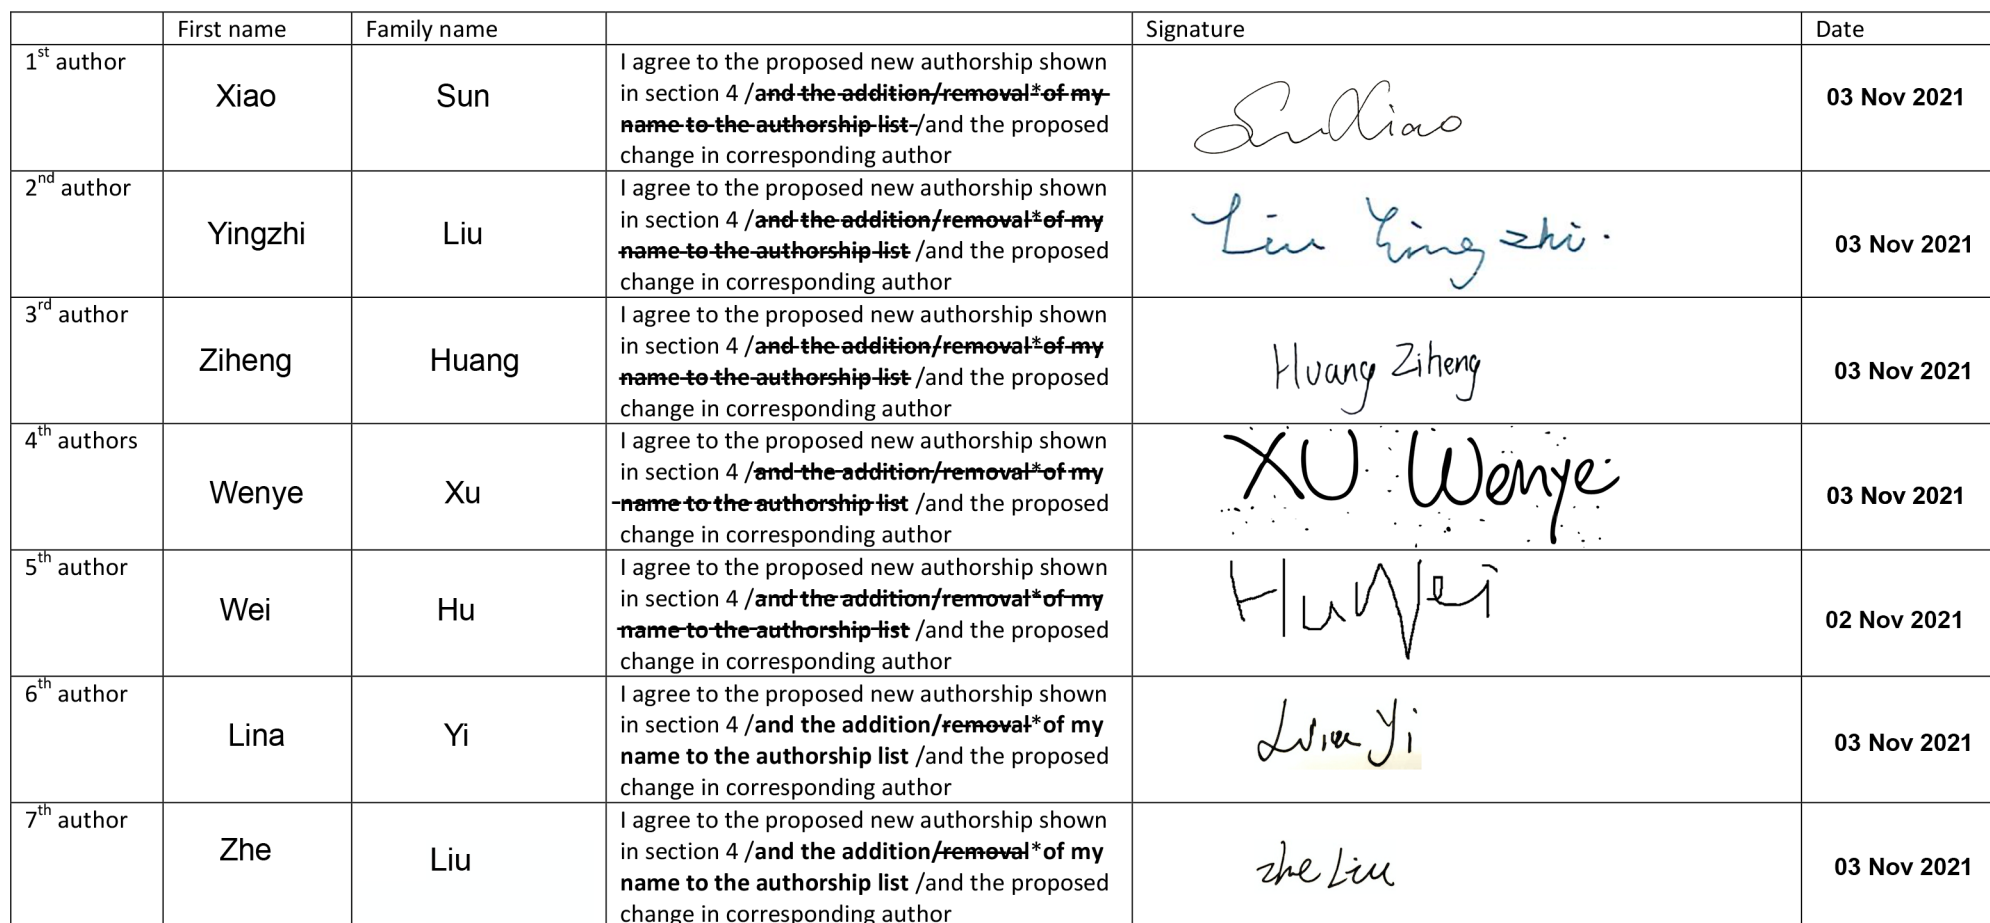 First name Family name Signature Date
1st author Xiao Sun I agree to the proposed new authorship shown
in section 4 /and the addition/removal*of my
name to the authorship list /and the proposed
change in corresponding author Sun Xiao 03 Nov 2021
2nd author Yingzhi Liu I agree to the proposed new authorship shown
in section 4 /and the addition/removal*of my
name to the authorship list /and the proposed
change in corresponding author Liu Yingzhi. 03 Nov 2021
3rd author Ziheng Huang I agree to the proposed new authorship shown
in section 4 /and the addition/removal*of my
name to the authorship list /and the proposed
change in corresponding author Huang Ziheng 03 Nov 2021
4th authors Wenye Xu I agree to the proposed new authorship shown
in section 4 /and the addition/removal*of my
name to the authorship list /and the proposed
change in corresponding author XU Wenye 03 Nov 2021
5th author Wei Hu I agree to the proposed new authorship shown
in section 4 /and the addition/removal*of my
name to the authorship list /and the proposed
change in corresponding author Hu Wei 02 Nov 2021
6th author Lina Yi I agree to the proposed new authorship shown
in section 4 /and the addition/removal*of my
name to the authorship list /and the proposed
change in corresponding author Lina Yi 03 Nov 2021
7th author Zhe Liu I agree to the proposed new authorship shown
in section 4 /and the addition/removal*of my
name to the authorship list /and the proposed
change in corresponding author zhe Liu 03 Nov 2021